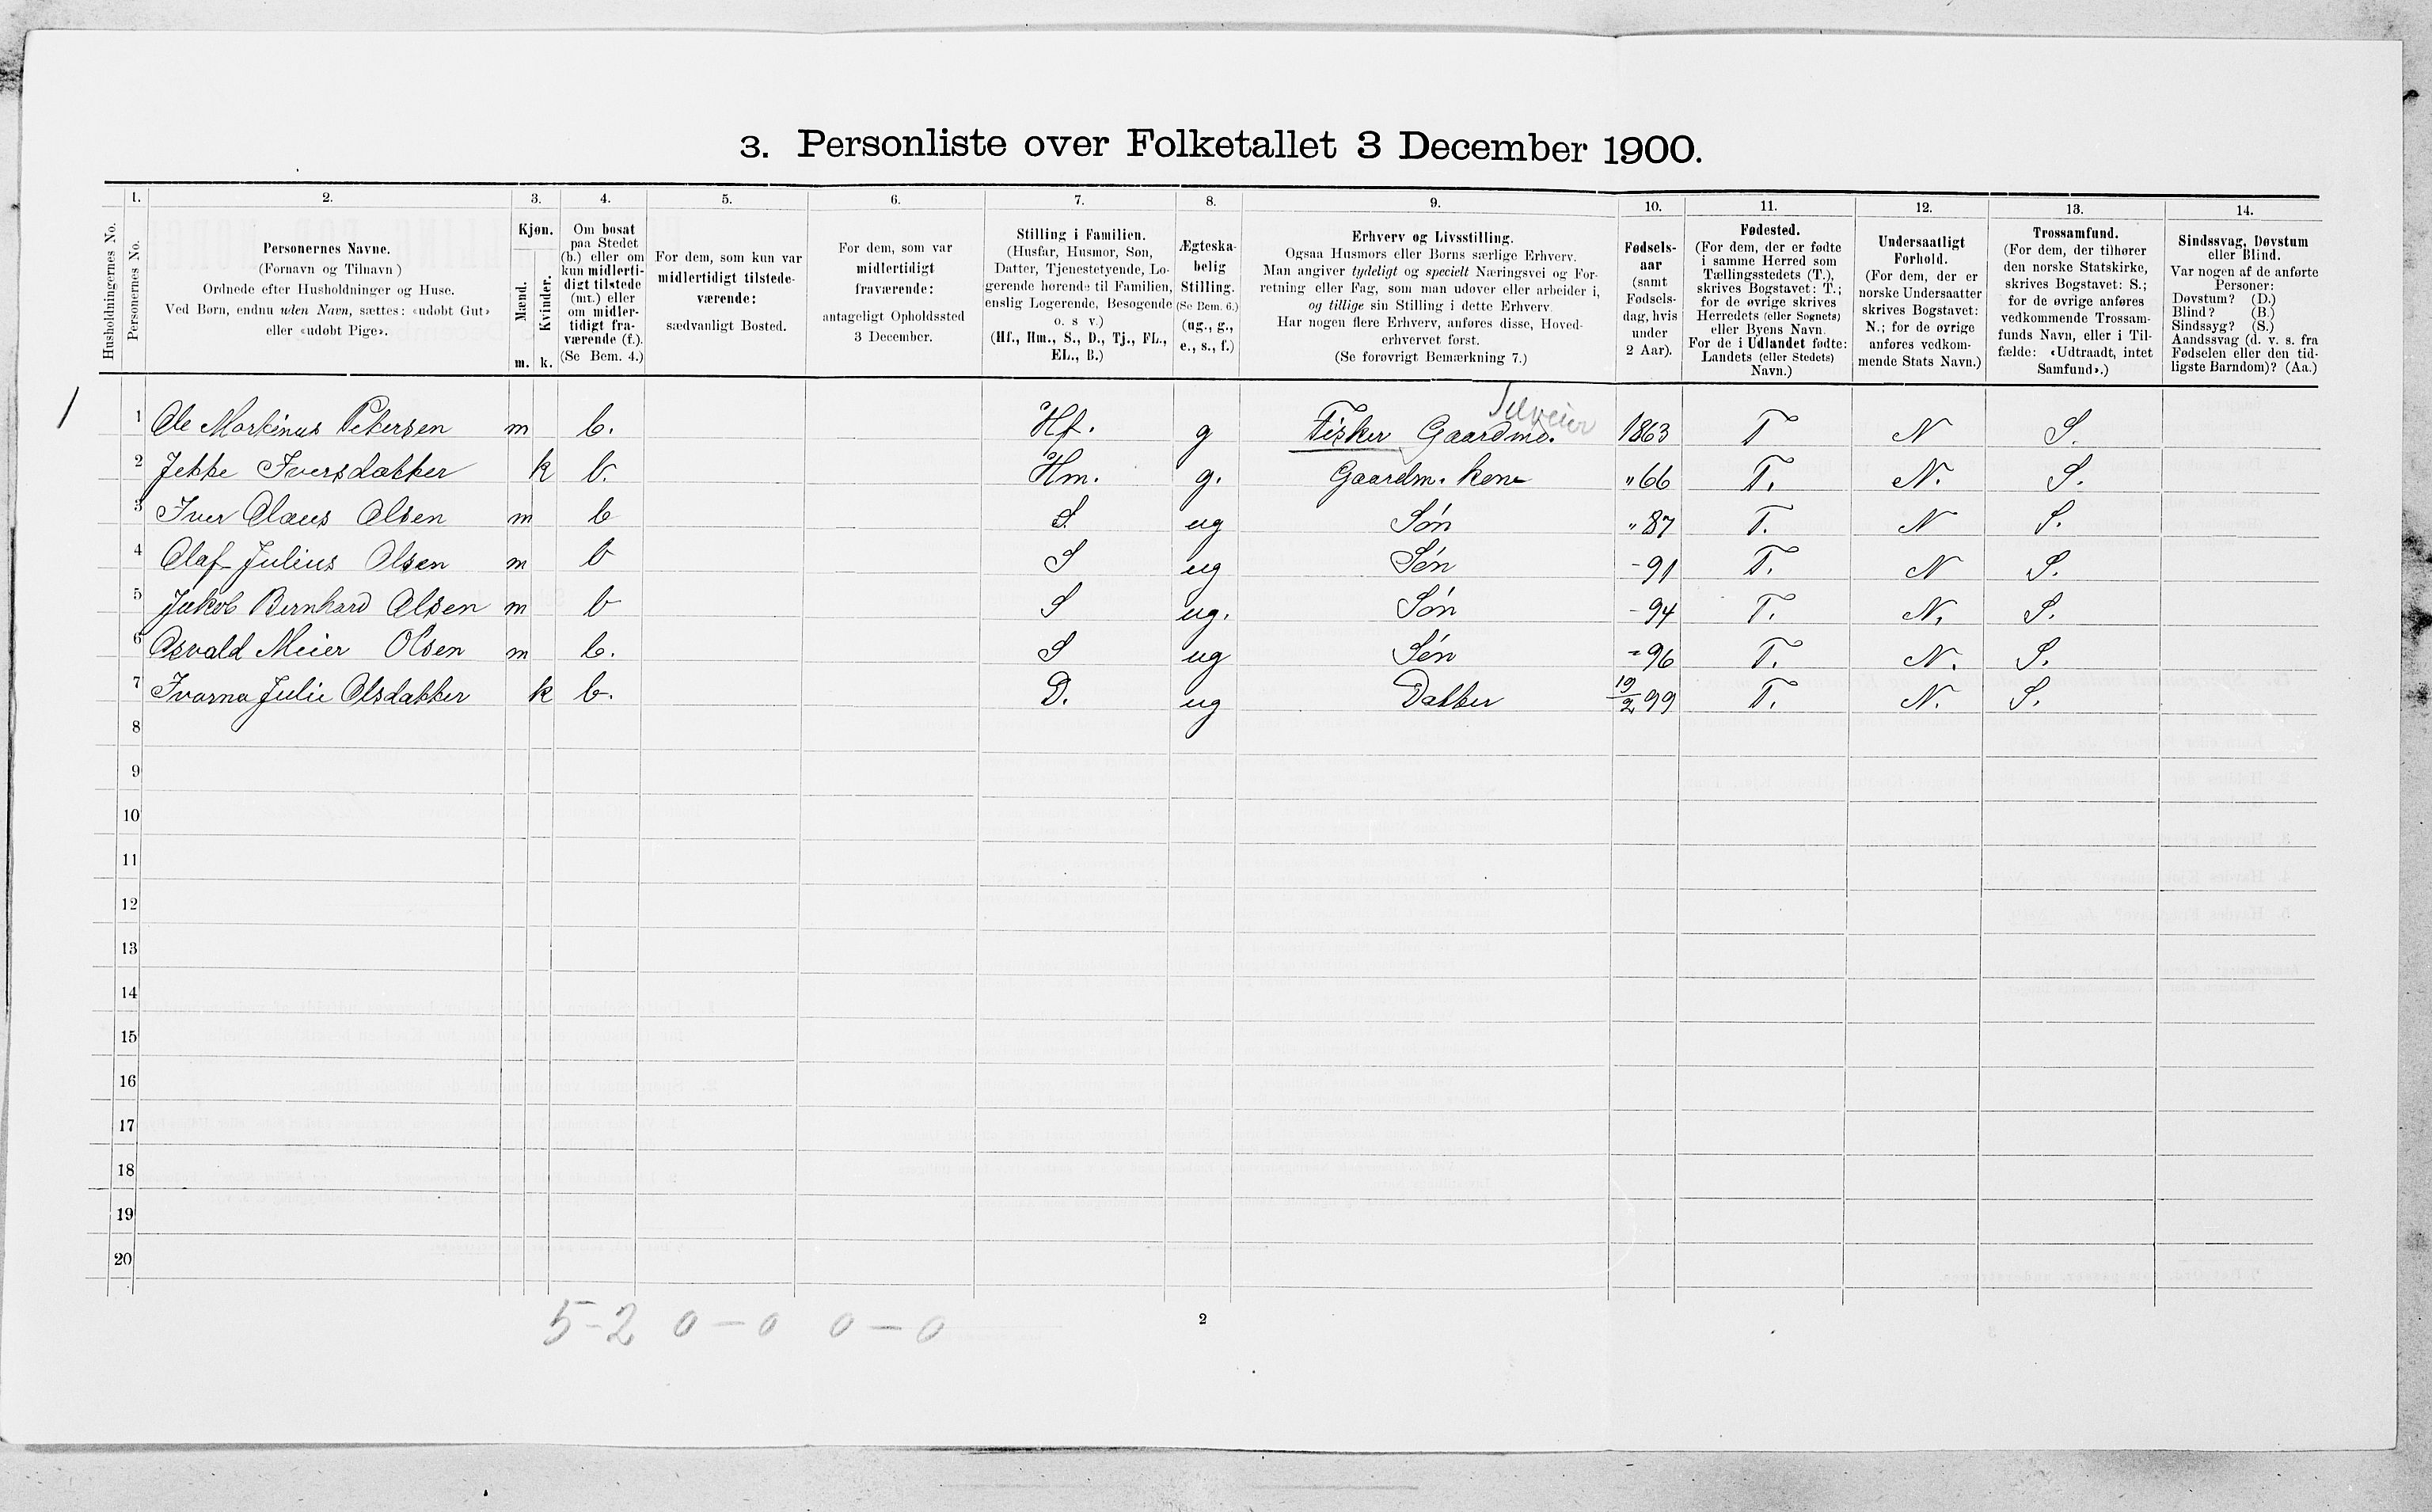 3. Personliste over Folketallet 3 December 1900.
Husholdningernes No.
1.
Personernes No.
2.
Personernes Navne.
(Fornavn og Tilnavn)
Ordnede efter Husholdninger og Huse.
Ved Børn, endnu uden Navn, sættes: «udøbt Gut»
eller «udøbt Pige».
3.
Kjøn.
Mænd.
Kvinder.
m. k.
4.
Om bosat
paa Stedet
(b.) eller om
kun midlerti-
digt tilstede
(mt.) eller
om midler-
tidigt fra-
værende (f.).
(Se Bem. 4.)
5.
For dem, som kun var
midlertidigt tilstede-
værende:
sædvanligt Bosted.
6.
For dem, som var
midlertidigt
fraværende:
antageligt Opholdssted
3 December.
7.
Stilling i Familien.
(Husfar, Husmor, Søn,
Datter, Tjenestetyende, Lo-
gerende hørende til Familien,
enslig Logerende, Besøgende
o. s v.)
(Hf., Hm., S., D., Tj., FL.,
EL., B.)
8.
Ægteska-
belig
Stilling.
(Se Bem. 6.)
(ug., g.,
e., s., f.)
9.
Erhverv og Livsstilling.
Ogsaa Husmors eller Børns særlige Erhverv.
Man angiver tydeligt og specielt Næringsvei og For-
retning eller Fag, som man udøver eller arbeider i,
og tillige sin Stilling i dette Erhverv.
Har nogen flere Erhverv, anføres disse, Hoved-
erhvervet først.
(Se forøvrigt Bemærkning 7.)
10.
Fødsels-
aar
(samt
Fødsels-
dag, hvis
under
2 Aar).
11.
Fødested.
(For dem, der er fødte
i samme Herred som
Tællingsstedets (T.),
skrives Bogstavet: T.;
for de øvrige skrives
Herredets (eller Sognets)
eller Byens Navn.
For de i Udlandet fødte:
Landets (eller Stedets)
Navn.)
12.
Undersaatligt
Forhold.
(For dem, der er
norske Undersaatter
skrives Bogstavet:
N.; for de øvrige
anføres vedkom-
mende Stats Navn.)
13.
Trossamfund.
(For dem, der tilhører
den norske Statskirke,
skrives Bogstavet: S.;
for de øvrige anføres
vedkommende Trossam-
funds Navn, eller i Til-
fælde: «Udtraadt, intet
Samfund».)
14.
Sindssvag, Døvstum
eller Blind.
Var nogen af de anførte
Personer:
Døvstum? (D.)
Blind? (B.)
Sindssyg? (S.)
Aandssvag (d. v. s. fra
Fødselen eller den tid-
ligste Barndom)? (Aa.)
Selveier
1 1 Ole Martinus Petersen m b. Hf. g Fisker Gaardmd. 1863 T N S.
2 Jette Iversdatter k b. Hm. g. Gaardm. kone " 66 T. N. S.
3 Iver Olaus Olsen m b S. ug Søn " 87 T. N S.
4 Olaf Julius Olsen m b S ug Søn - 91 T. N S.
5 Jakob Bernhard Olsen m b S ug. Søn - 94 T. N. S.
6 Osvald Meier Olsen m b. S ug Søn = 96 T. N. S.
7 Ivarna Julie Olsdatter k b. D. ug Datter 19/2 99 T. N. S.
8
9
10
11
12
13
14
15
16
17
18
19
20
5-2 0-0 0-0
2